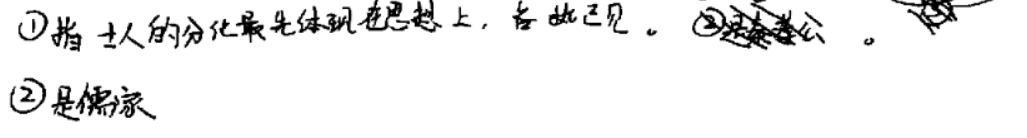 ①指士人的分化最先体现在思想上，各执己见。 。
②是儒家